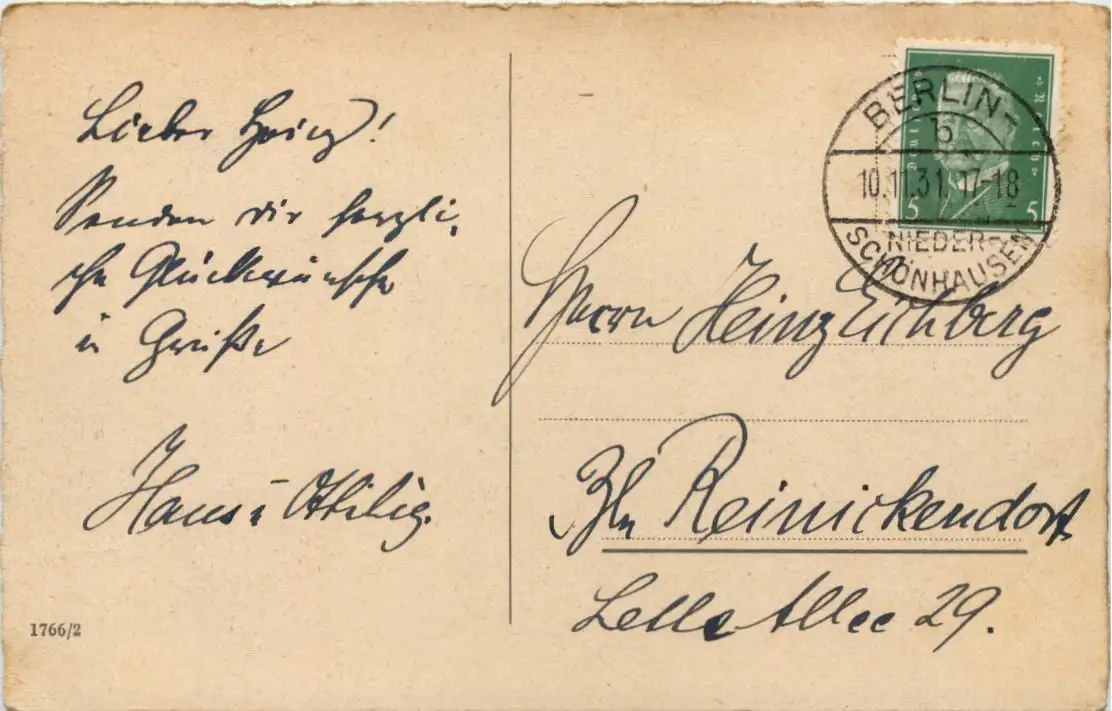 Lieber Heinz!
Senden dir herzli-
che Glückwünsche
u Grüße
Hans u
1766/2
BERLIN-
b
10.11.31. 17-18
NIEDER-
SCHÖNHAUSEN
5 5
Herrn Heinz Eichberg
Bln Reinickendorf
Allee 29.